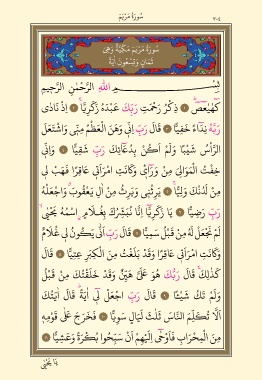 سُورَةُ مَرْيَمَ ٣٠٤
سُورَةُ مَرْيَمَ مَكِّيَّةٌ وَهِيَ
ثَمَانٍ وَتِسْعُونَ اٰيَةً
بِسْمِ اللّٰهِ الرَّحْمٰنِ الرَّحِيمِ
كٓهٰيٰعٓصٓ ﴿١﴾ ذِكْرُ رَحْمَتِ رَبِّكَ عَبْدَهُ زَكَرِيَّا ﴿٢﴾ اِذْ نَادٰى
رَبَّهُ نِدَٓاءً خَفِيًّا ﴿٣﴾ قَالَ رَبِّ اِنِّي وَهَنَ الْعَظْمُ مِنِّي وَاشْتَعَلَ
الرَّأْسُ شَيْبًا وَلَمْ اَكُنْ بِدُعَٓائِكَ رَبِّ شَقِيًّا ﴿٤﴾ وَاِنِّي
خِفْتُ الْمَوَالِيَ مِنْ وَرَٓاءِي وَكَانَتِ امْرَاَتِي عَاقِرًا فَهَبْ لِي
مِنْ لَدُنْكَ وَلِيًّا ﴿٥﴾ يَرِثُنِي وَيَرِثُ مِنْ اٰلِ يَعْقُوبَ وَاجْعَلْهُ
رَبِّ رَضِيًّا ﴿٦﴾ يَا زَكَرِيَّٓا اِنَّا نُبَشِّرُكَ بِغُلَامٍ اسْمُهُ يَحْيٰى
لَمْ نَجْعَلْ لَهُ مِنْ قَبْلُ سَمِيًّا ﴿٧﴾ قَالَ رَبِّ اَنّٰى يَكُونُ لِي غُلَامٌ
وَكَانَتِ امْرَاَتِي عَاقِرًا وَقَدْ بَلَغْتُ مِنَ الْكِبَرِ عِتِيًّا ﴿٨﴾ قَالَ
كَذٰلِكَ قَالَ رَبُّكَ هُوَ عَلَيَّ هَيِّنٌ وَقَدْ خَلَقْتُكَ مِنْ قَبْلُ
وَلَمْ تَكُ شَيْئًا ﴿٩﴾ قَالَ رَبِّ اجْعَلْ لِٓي اٰيَةً قَالَ اٰيَتُكَ
اَلَّا تُكَلِّمَ النَّاسَ ثَلٰثَ لَيَالٍ سَوِيًّا ﴿١٠﴾ فَخَرَجَ عَلٰى قَوْمِهِ
مِنَ الْمِحْرَابِ فَاَوْحٰٓى اِلَيْهِمْ اَنْ سَبِّحُوا بُكْرَةً وَعَشِيًّا ﴿١١﴾
يَا يَحْيٰى